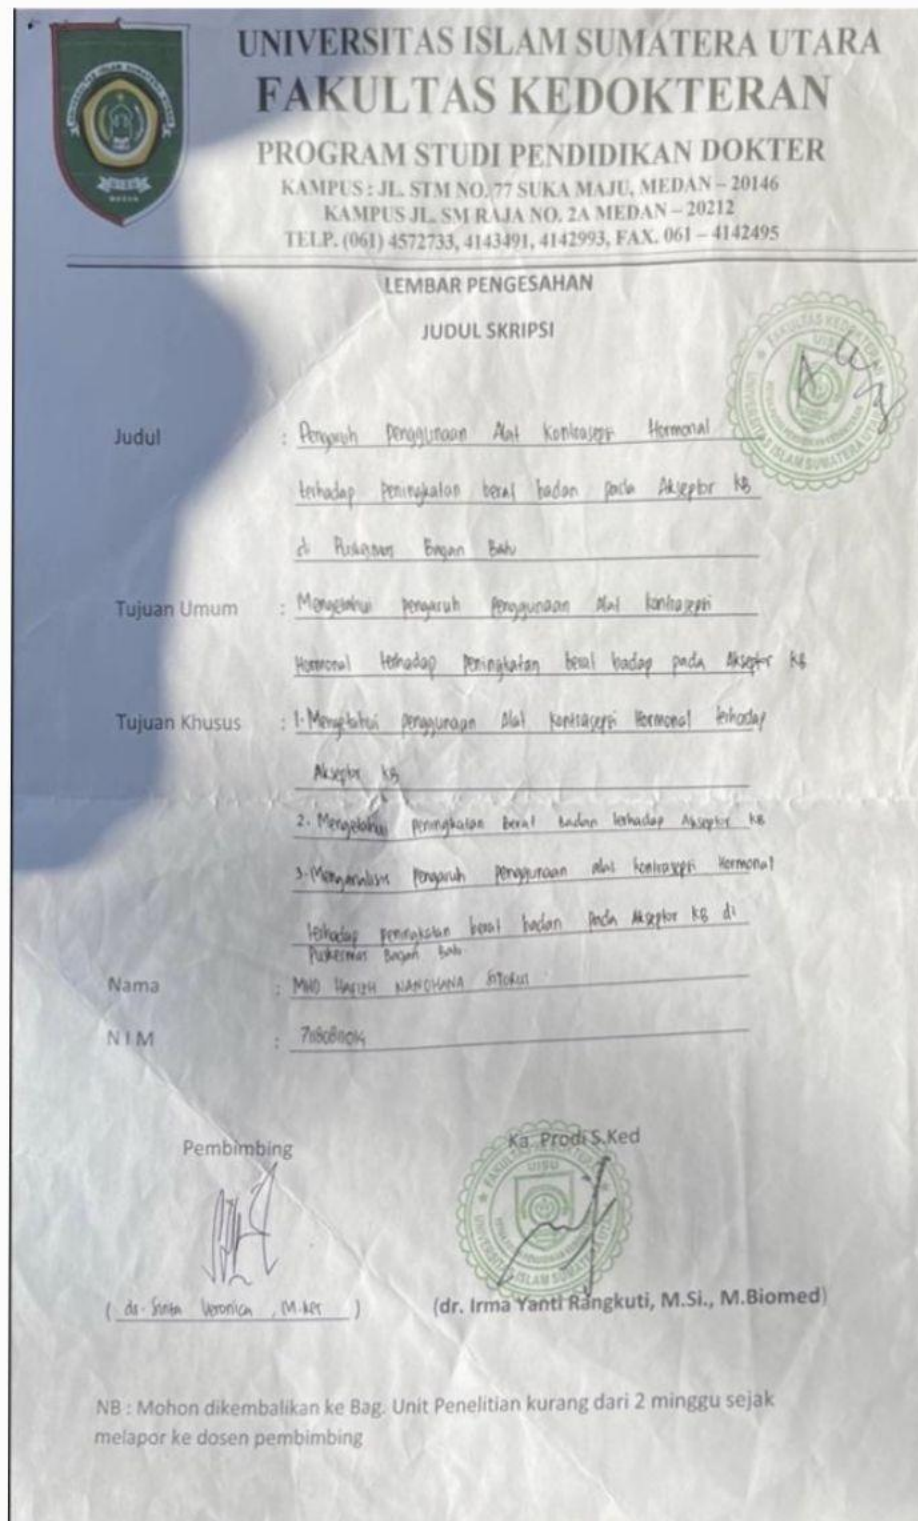 UNIVERSITAS ISLAM SUMATERA UTARA
FAKULTAS KEDOKTERAN
PROGRAM STUDI PENDIDIKAN DOKTER
KAMPUS : JL. STM NO. 77 SUKA MAJU, MEDAN – 20146
KAMPUS JL. SM RAJA NO. 2A MEDAN – 20212
TELP. (061) 4572733, 4143491, 4142993, FAX. 061 – 4142495
LEMBAR PENGESAHAN
JUDUL SKRIPSI
Judul : Pengaruh Penggunaan Alat Kontrasepsi Hormonal
terhadap Peningkatan berat badan pada Akseptor KB
di Puskesmas Bagan Batu
Tujuan Umum : Mengetahui pengaruh penggunaan alat kontrasepsi
Hormonal terhadap peningkatan berat badan pada Akseptor KB
Tujuan Khusus : 1. Mengetahui penggunaan Alat Kontrasepsi Hormonal terhadap
Akseptor KB
2. Mengetahui peningkatan berat badan terhadap Akseptor KB
3. Menganalisis pengaruh penggunaan alat kontrasepsi Hormonal
terhadap peningkatan berat badan pada Akseptor KB di
Puskesmas Bagan Batu
Nama : MHD NANDHANA
NIM :
Pembimbing Ka Prodi S.Ked
UISU
( dr. Veronica, M.Kes ) (dr. Irma Yanti Rangkuti, M.Si., M.Biomed)
NB : Mohon dikembalikan ke Bag. Unit Penelitian kurang dari 2 minggu sejak
melapor ke dosen pembimbing